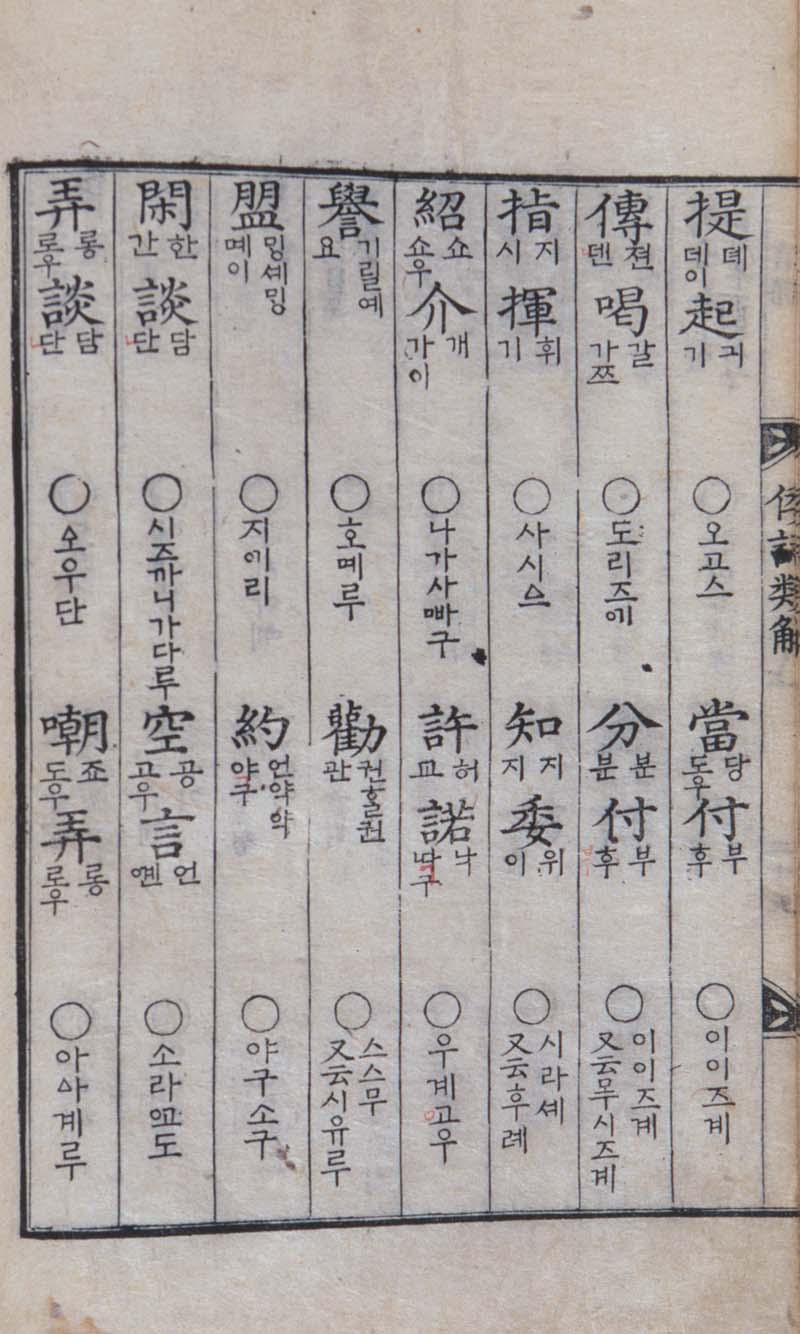 倭語類解
提 뎨 데이 起 긔 기 ○오고스 當 당 도우 付 부 후 ○이이즈계
傳 젼 덴 喝 갈 가쯔 ○도리즈에 分 분 분 付 부 후 ○이이즈계 又云무시즈계
指 지 시 揮 휘 기 ○사시스 知 지 지 委 위 이 ○시라셰 又云후례
紹 쇼 쇼우 介 개 가이 ○나가사빠구 許 허 교 諾 낙 따구 ○우계고우
譽 기릴예 요 ○호메루 勸 권홀권 관 ○스스무 又云시유루
盟 밍셰밍 몌이 ○지예리 約 언약약 야구 ○야구소구
閑 한 간 談 담 단 ○시즈까니가다루 空 공 고우 言 언 옌 ○소라
弄 롱 로우 談 담 단 ○쇼우단 嘲 죠 도우 弄 롱 로우 ○아ᅀᅡ계루